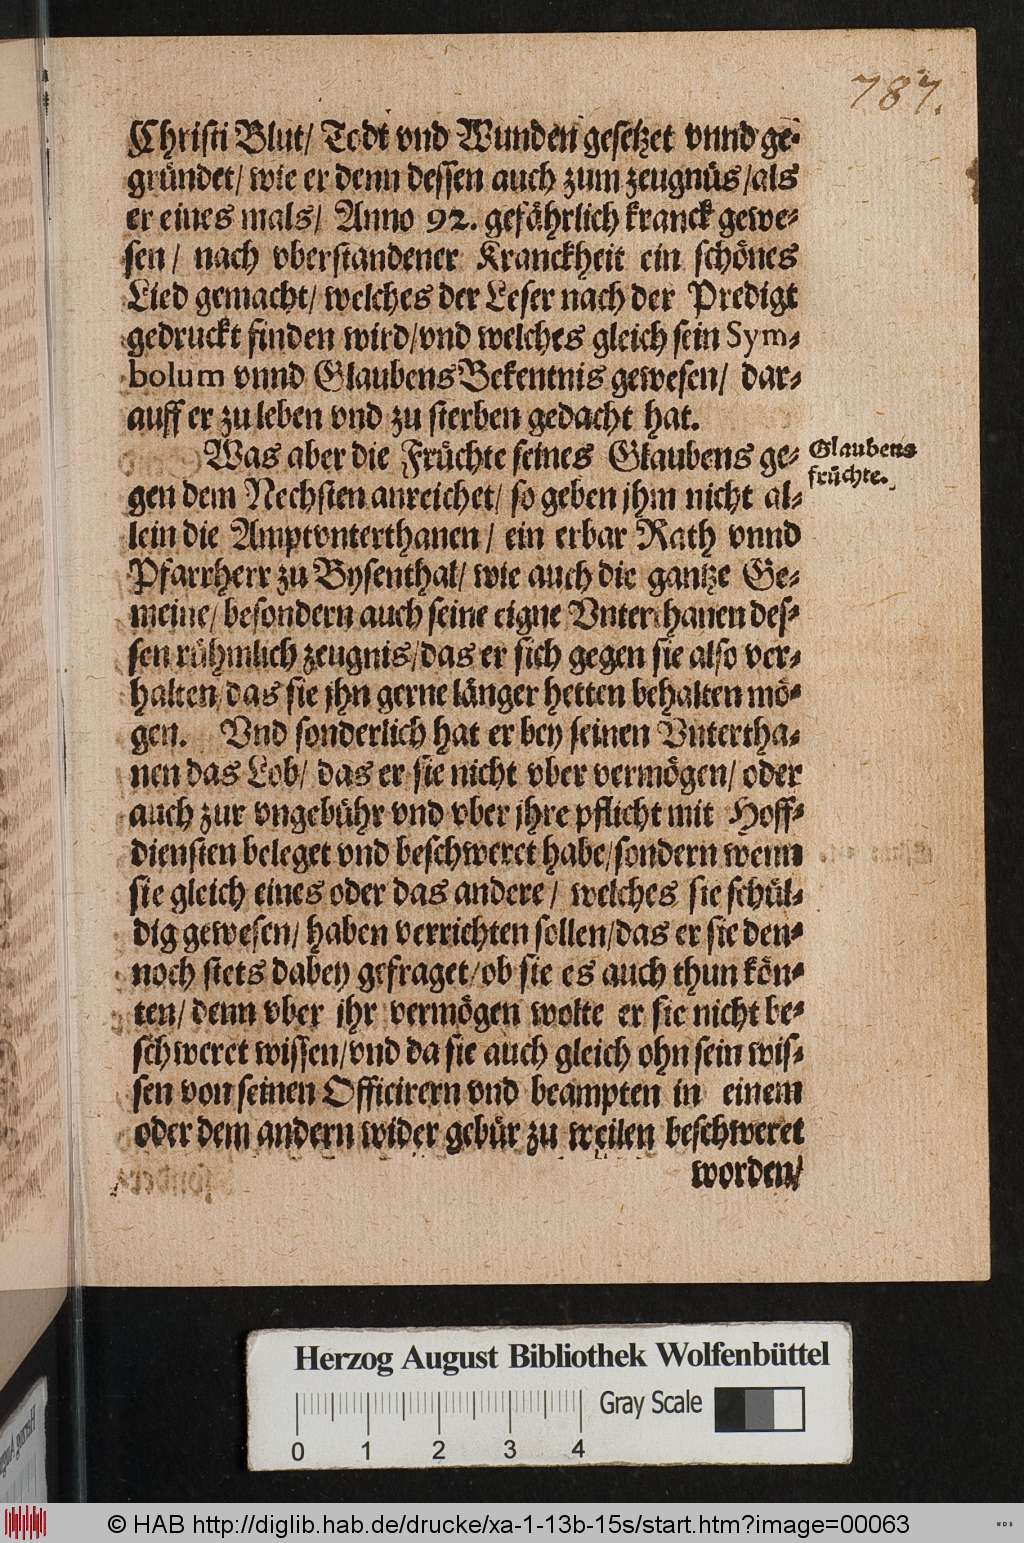 787.
Christi Blut/ Todt vnd Wunden gesetzet vnnd ge-
gründet/ wie er denn dessen auch zum zeugnüs/als
er eines mals/ Anno 92. gefährlich kranck gewe-
sen/ nach vberstandener Kranckheit ein schönes
Lied gemacht/ welches der Leser nach der Predigt
gedruckt finden wird/vnd welches gleich sein Sym-
bolum vnnd Glaubens Bekentnis gewesen/ dar-
auff er zu leben vnd zu sterben gedacht hat.
Was aber die Früchte seines Glaubens ge-
Glaubens
früchte.
gen dem Nechsten anreichet/ so geben jhm nicht al-
lein die Amptvnterthanen/ ein erbar Rath vnnd
Pfarrherr zu Bysenthal/ wie auch die gantze Ge-
meine/ besondern auch seine eigne Vnterthanen des-
sen rühmlich zeugnis/das er sich gegen sie also ver-
halten/das sie jhn gerne länger hetten behalten mö-
gen. Vnd sonderlich hat er bey seinen Vntertha-
nen das Lob/ das er sie nicht vber vermögen/ oder
auch zur vngebühr vnd vber jhre pflicht mit Hoff-
diensten beleget vnd beschweret habe/sondern wenn
sie gleich eines oder das andere/ welches sie schül-
dig gewesen/ haben verrichten sollen/das er sie den-
noch stets dabey gefraget/ob sie es auch thun kön-
ten/ denn vber jhr vermögen wolte er sie nicht be-
schweret wissen/vnd da sie auch gleich ohn sein wis-
sen von seinen Officirern vnd beampten in einem
oder dem andern wider gebür zu weilen beschweret
worden/
Herzog August Bibliothek Wolfenbüttel
Gray Scale
0 1 2 3 4
© HAB http://diglib.hab.de/drucke/xa-1-13b-15s/start.htm?image=00063